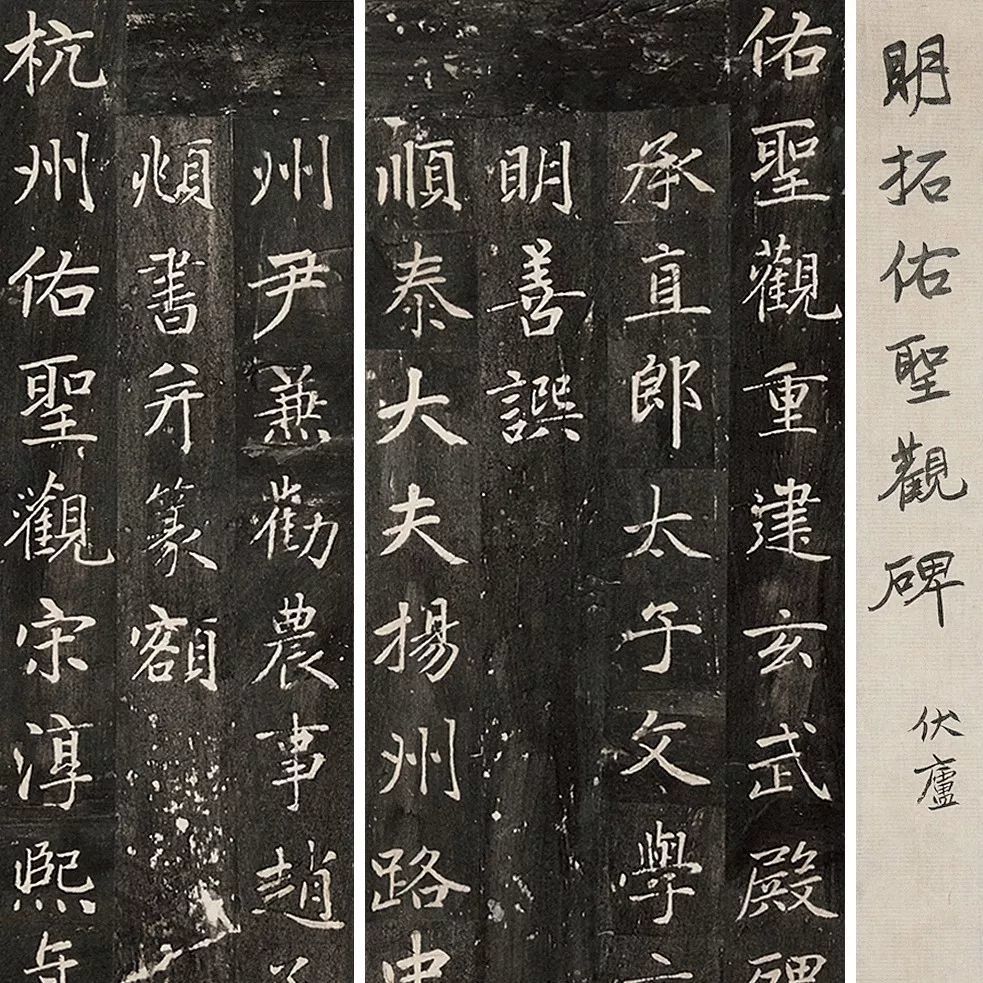 明拓佑聖觀碑
伏廬
佑聖觀重建玄武殿碑
承直郎太子文學
明善譔
順泰大夫揚州路
州尹兼勸農事趙
頫書并篆額
杭州佑聖觀宋淳熙